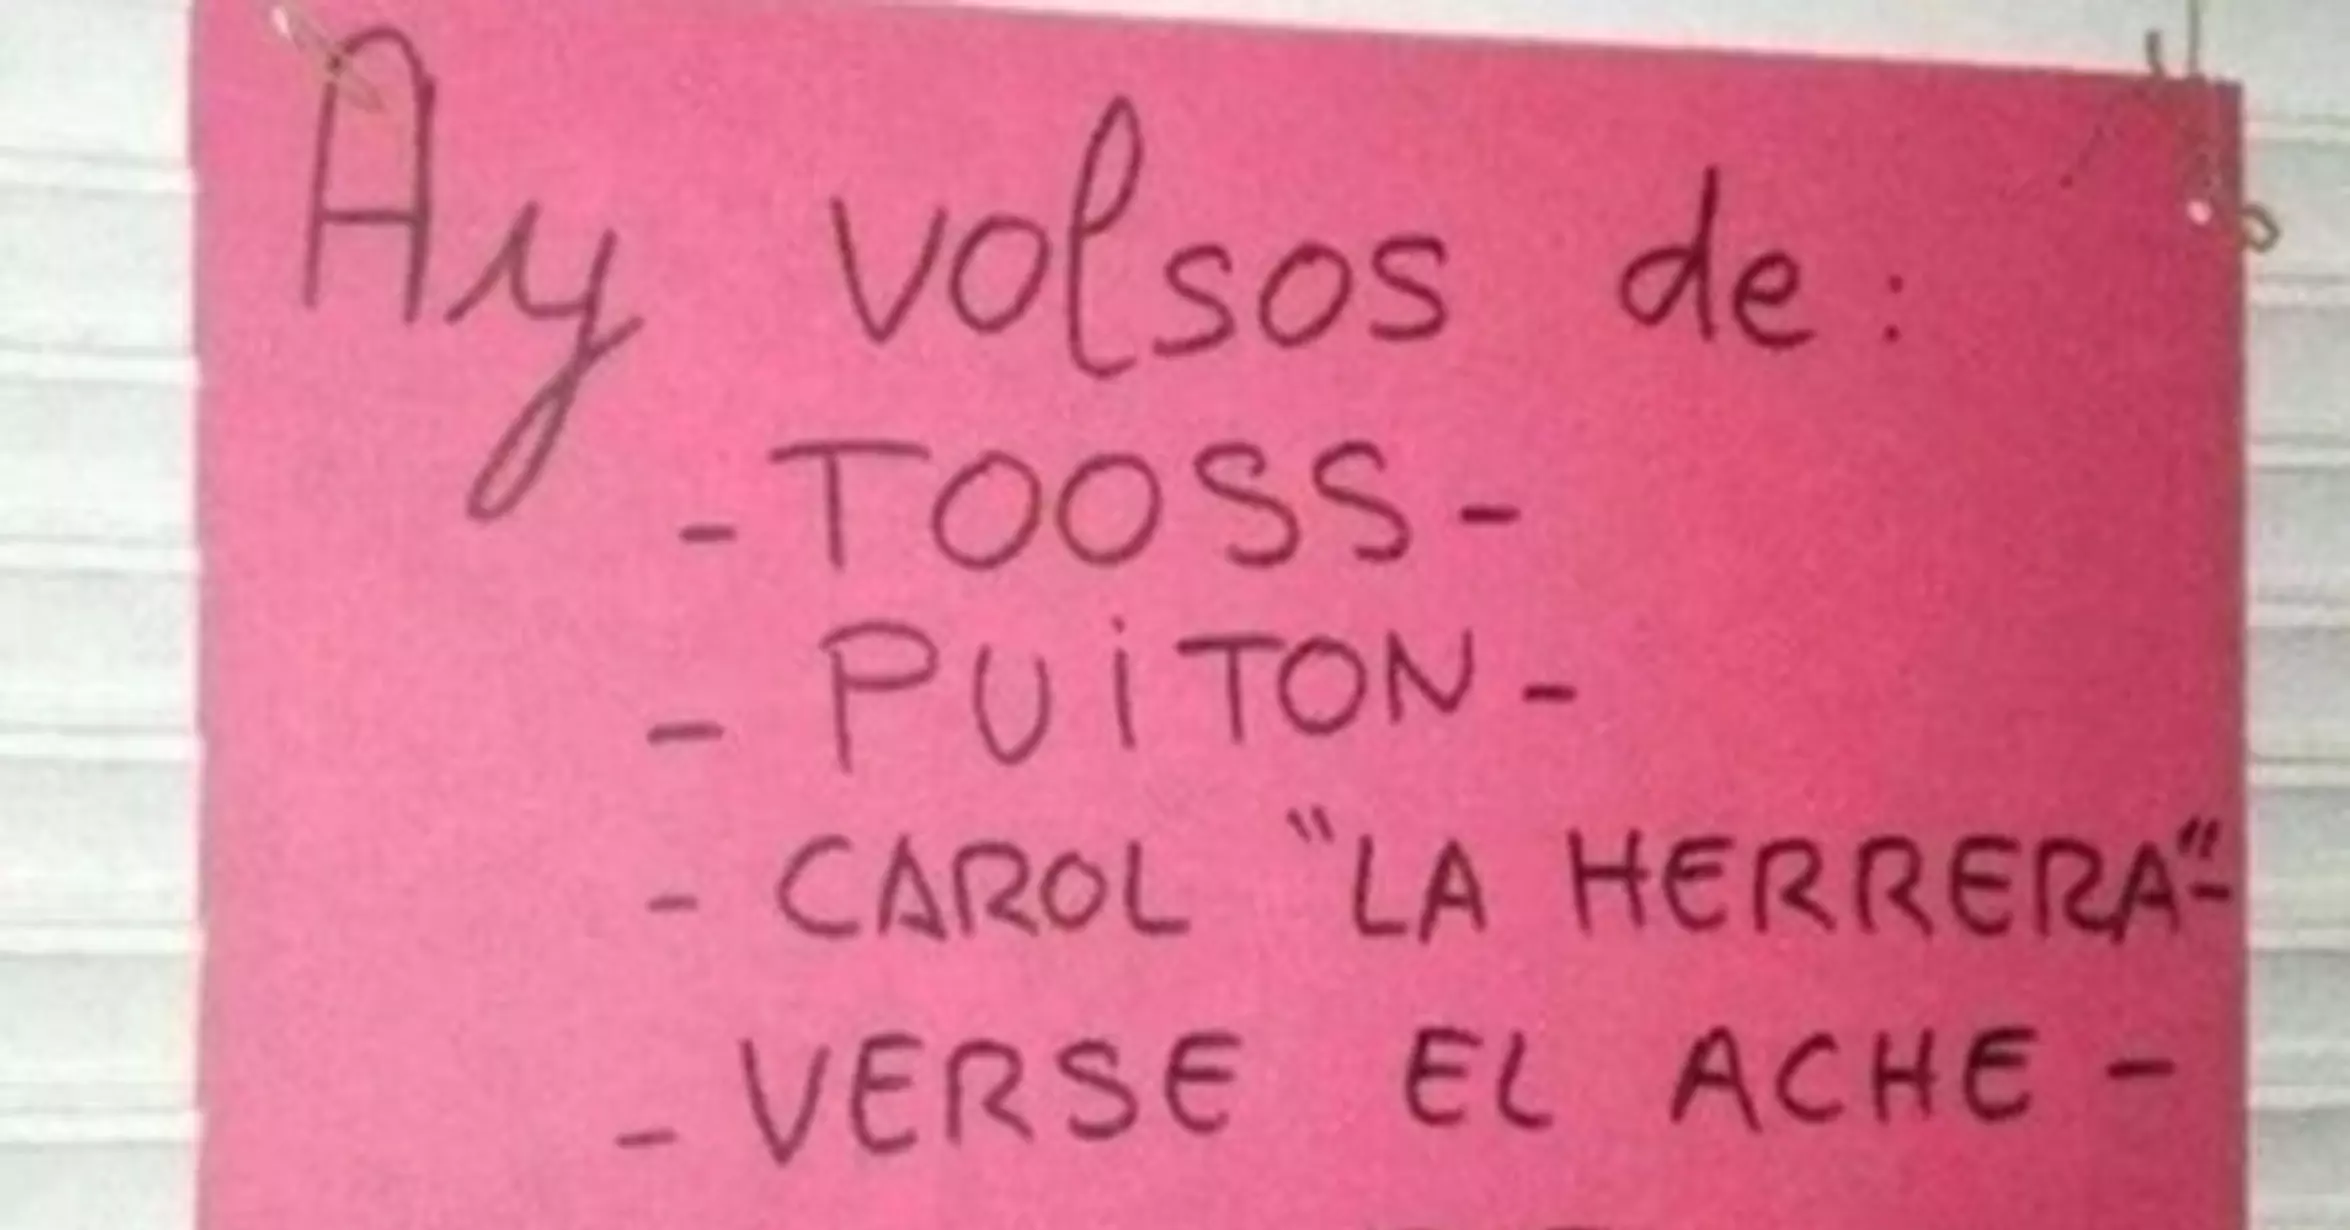 Ay volsos de:
-TOOSS-
- PUiTON-
- CAROL "LA HERRERA"-
- VERSE EL ACHE -